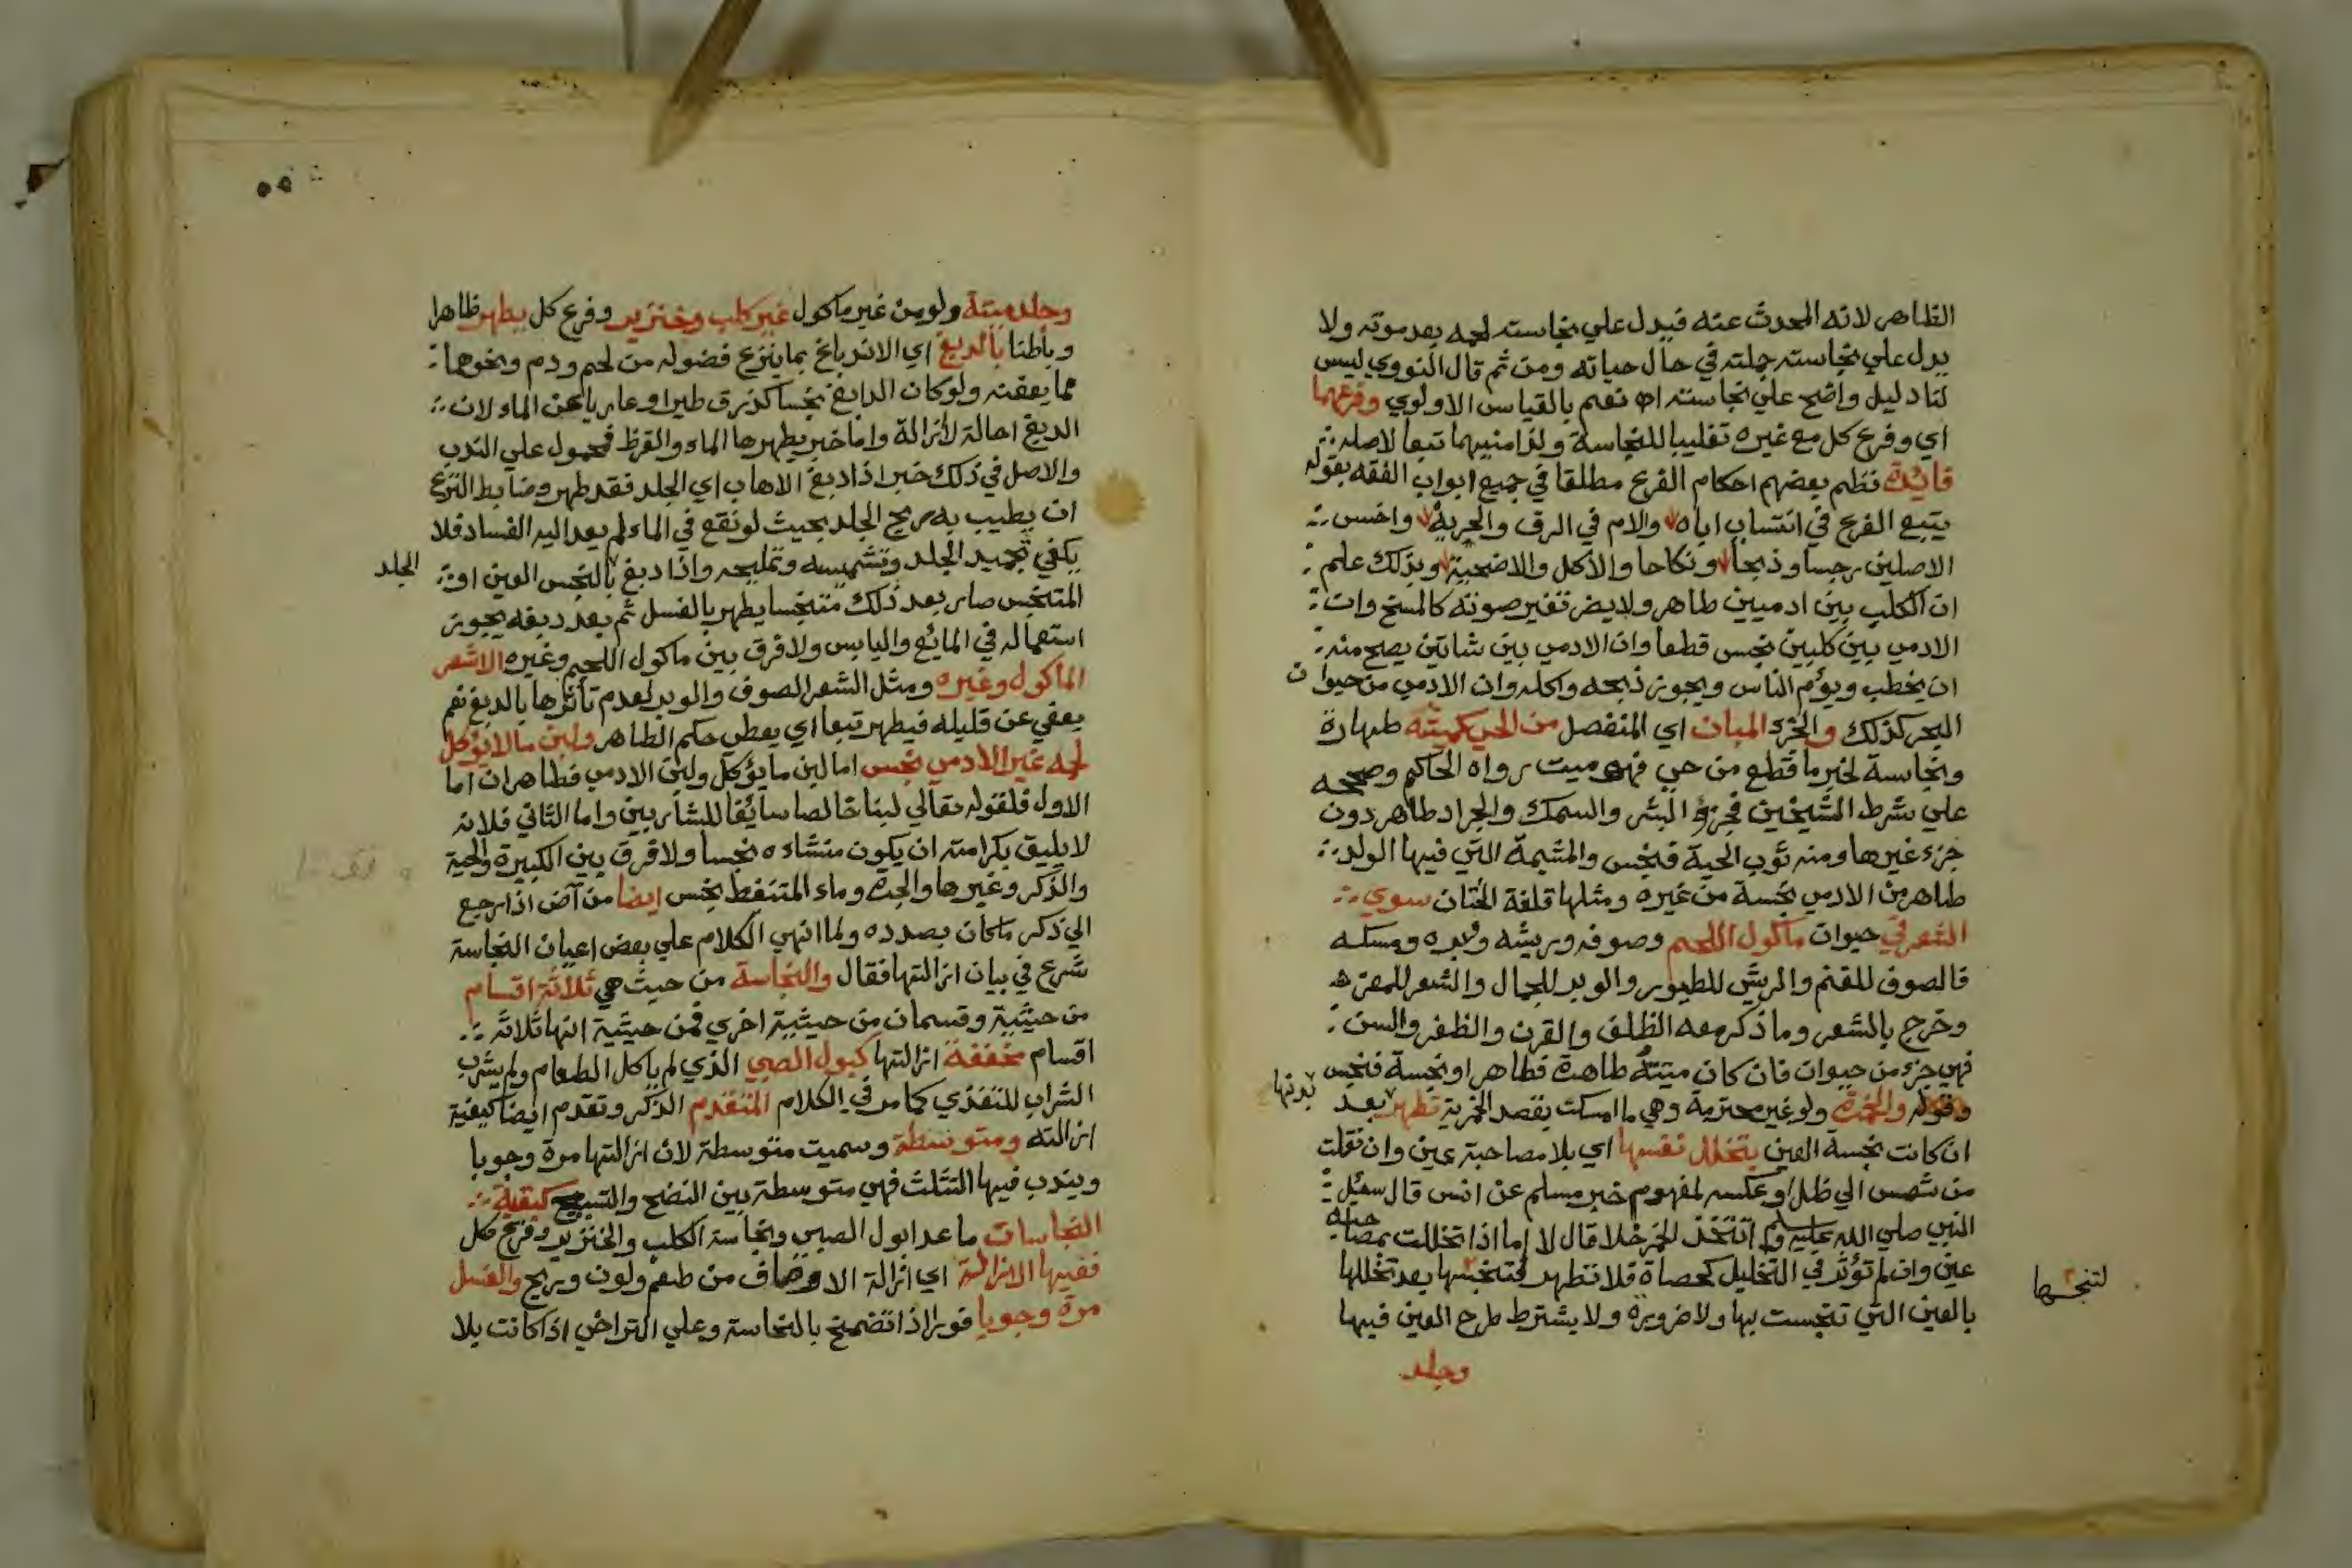 الظاهر لانه المحدث عنه فيدل علي نجاسته لحمه بعد موته ولا
يدل علي نجاسته جملته في حال حياته ومن ثم قال النووي ليس
لنا دليل واضح علي نجاسته اه نعم بالقياس الاولوي وفرعهما
اي وفرع كل مع غيره تغليبا للنجاسة ولذا منيهما تبعا لاصله
فائدة نظم بعضهم احكام الفرع مطلقا في جميع ابواب الفقه بقوله
يتبع الفرع في انتساب اباه والام في الرق والحرية واخس
الاصلين رجسا وذبحا ونكاحا والاكل والاضحية وبذلك علم
ان الكلب بين ادميين طاهر ولا يضر تغير صورته كالمسخ وان
الادمي بين كلبين نجس قطعا وان الادمي بين شاتين يصح منه
ان يخطب ويؤم الناس ويجوز ذبحه واكله وان الادمي من حيوان
البحر كذلك والجزء المبان اي المنفصل من الحي كميتته طهارة
ونجاسة لخبر ما قطع من حي فهو ميت رواه الحاكم وصححه
علي شرط الشيخين فجزء البشر والسمك والجراد طاهر دون
جزء غيرها ومنه ثوب الحية فنجس والمشيمة التي فيها الولد
طاهر من الادمي نجسة من غيره ومثلها قلفة الختان سوي
الشعر في حيوان ماكول اللحم وصوفه وريشه ووبره ومسكه
فالصوف للغنم والريش للطيور والوبر للجمال والشعر للمعز
وخرج بالشعر وما ذكر معه الظلف والقرن والظفر والسن
فهي جزء من حيوان فان كان ميتته طاهرة فطاهر او نجسة فنجس
وقوله والخمرة ولو غير محترمة وهي ما امسكت بقصد الخمرية تطهر بعد
بدنها
ان كانت نجسة العين بتخلل نفسها اي بلا مصاحبة عين وان نقلت
من شمس الي ظل او عكسه لمفهوم خبر مسلم عن انس قال سئل
النبي صلي الله عليه وسلم اتتخذ الخمر خلا قال لا اما اذا تخللت بمصاحبة
عين وان لم تؤثر في التخليل كحصاة فلا تطهر لتنجسها بعد تخللها
لتنجسها
بالعين التي تنجست بها ولا ضرورة ولا يشترط طرح العين فيها
وجلد
٥٥
وجلد ميتة ولو من غير ماكول غير كلب وخنزير وفرع كل يطهر ظاهرا
وباطنا بالدبغ اي الاندباغ بما ينزع فضوله من لحم ودم ونحوهما
مما يعفنه ولو كان الدابغ نجسا كذرق طير او عاريا عن الماء لان
الدبغ احالة لا ازالة واما خبر يطهرها الماء والقرظ فمحمول علي الندب
والاصل في ذلك خبر اذا دبغ الاهاب اي الجلد فقد طهر وضابط النزع
ان يطيب به ريح الجلد بحيث لو نقع في الماء لم يعد اليه الفساد فلا
يكفي تجميد الجلد وتشميسه وتمليحه واذا دبغ بالنجس العين او
الجلد
المتنجس صار بعد ذلك متنجسا يطهر بالغسل ثم بعد دبغه يجوز
استعماله في المائع واليابس ولا فرق بين ماكول اللحم وغيره الا شعر
الماكول وغيره ومثل الشعر الصوف والوبر لعدم تاثرها بالدبغ نعم
يعفي عن قليله فيطهر تبعا اي يعطي حكم الطاهر ولبن ما لا يؤكل
لحمه غير الادمي نجس اما لبن ما يؤكل ولبن الادمي فطاهران اما
الاول فلقوله تعالي لبنا خالصا سائغا للشاربين واما الثاني فلانه
لا يليق بكرامته ان يكون منشاءه نجسا ولا فرق بين الكبيرة والحية
والذكر وغيرها والجرة وماء المتنفط نجس ايضا من آض اذا رجع
الي ذكر ما كان بصدده ولما انهي الكلام علي بعض اعيان النجاسة
شرع في بيان ازالتها فقال والنجاسة من حيث هي ثلاثة اقسام
من حيثية وقسمان من حيثية اخري فمن حيثية انها ثلاثة
اقسام مخففة ازالتها كبول الصبي الذي لم ياكل الطعام ولم يشرب
الشراب للتغذي كما مر في الكلام المتقدم الذكر وتقدم ايضا كيفية
ازالته ومتوسطة وسميت متوسطة لان ازالتها مرة وجوبا
ويندب فيها التثلث فهي متوسطة بين النضح والتسبيع كبقية
النجاسات ما عدا بول الصبي ونجاسة الكلب والخنزير وفرع كل
ففيها الازالة اي ازالة الاوصاف من طعم ولون وريح والغسل
مرة وجوبا فورا اذا تضمخ بالنجاسة وعلي التراخي اذا كانت بلا